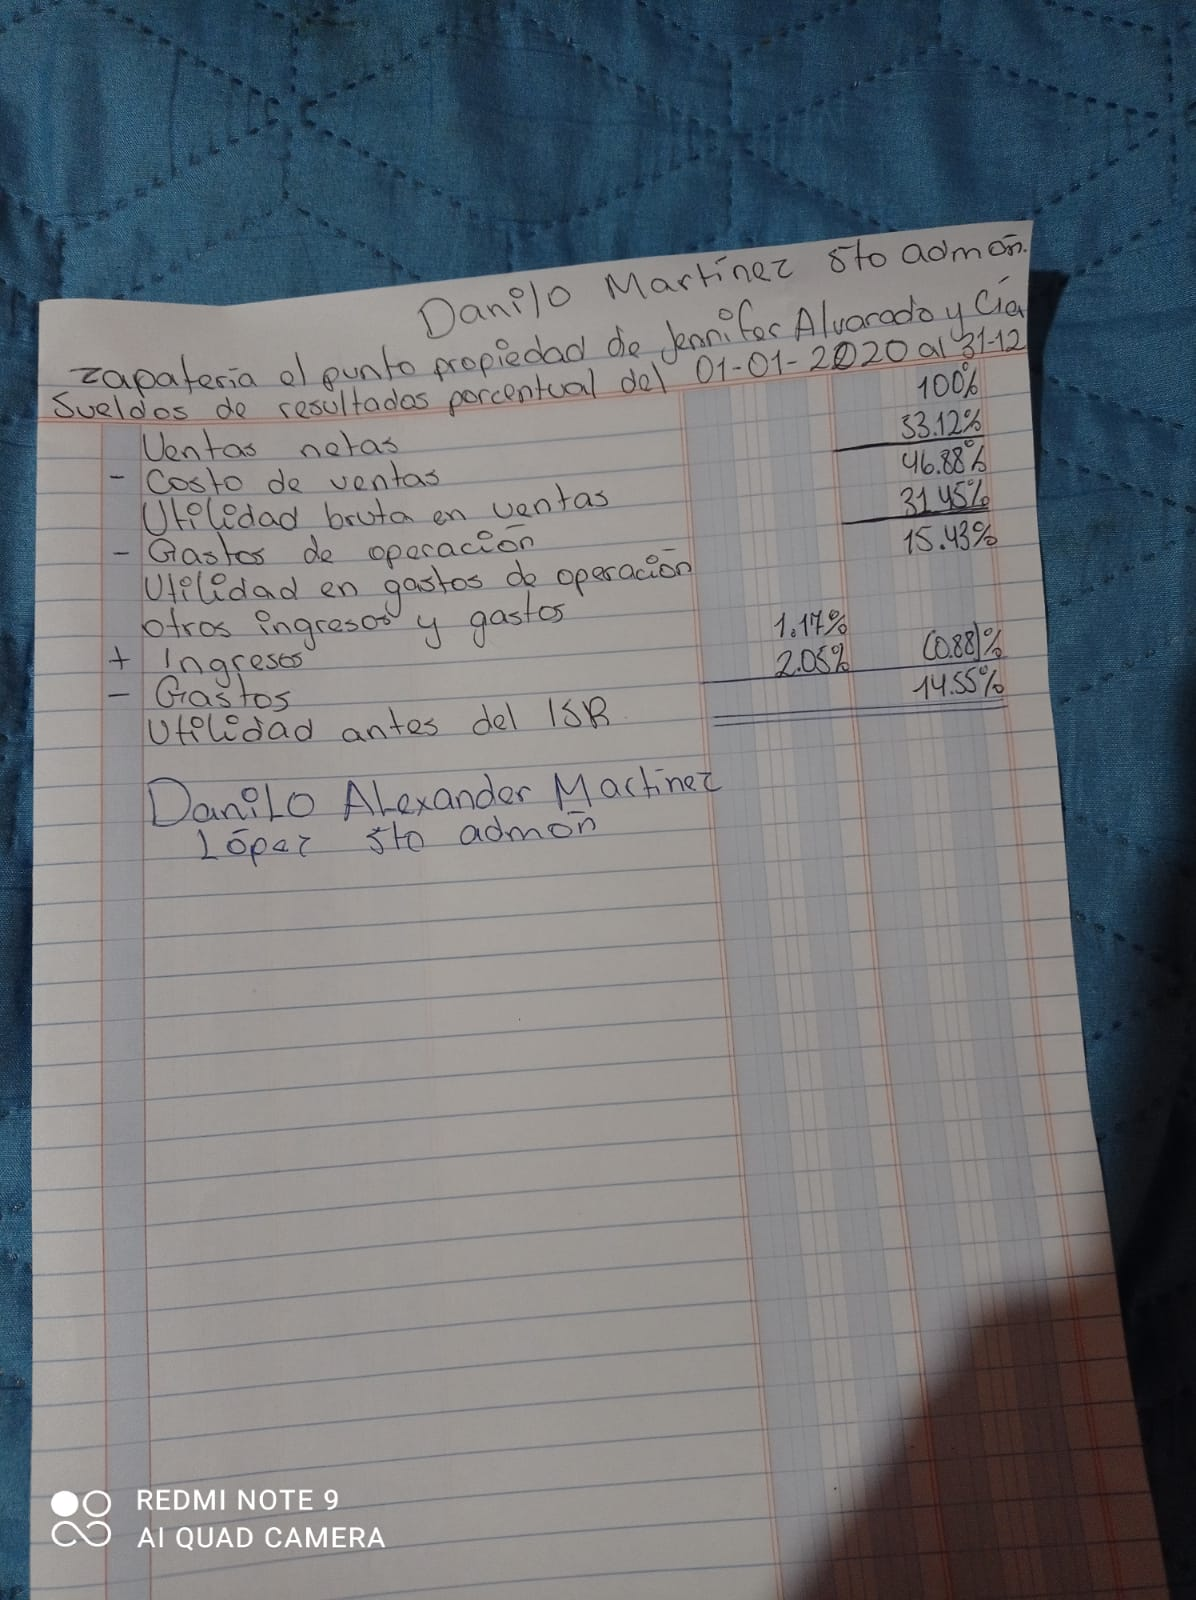 Danilo Martínez 5to admón.
zapatería el punto propiedad de Jennifer Alvarado y Cía
Sueldos de resultados porcentual del 01-01-2020 al 31-12
Ventas netas 100%
- Costo de ventas 53.12%
Utilidad bruta en ventas 46.88%
- Gastos de operación 31.45%
Utilidad en gastos de operación 15.43%
otros ingresos y gastos
+ Ingresos 1.17%
- Gastos 2.05% (0.88)%
Utilidad antes del ISR 14.55%
Danilo Alexander Martínez
López 5to admón
REDMI NOTE 9
AI QUAD CAMERA